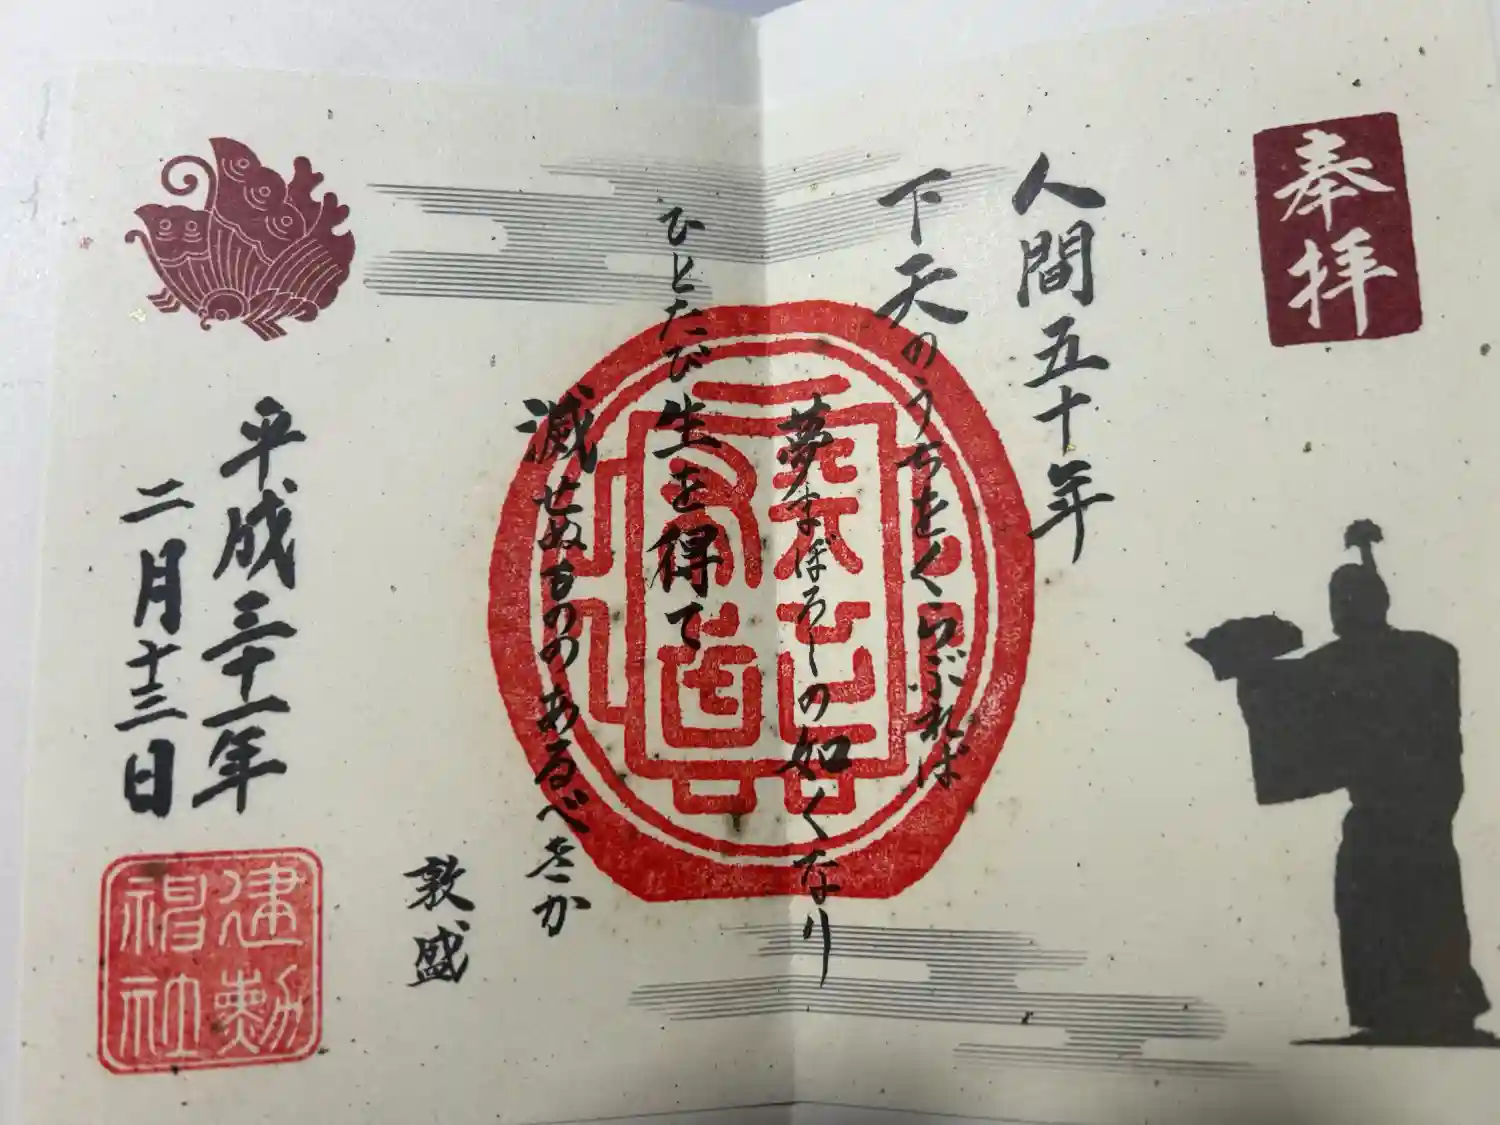 奉拝
人間五十年
下天のうちをくらぶれば
夢まぼろしの如くなり
ひとたび生を得て
滅せぬもののあるべきか
敦盛
平成三十一年
二月十三日
建勲
神社
天下布武